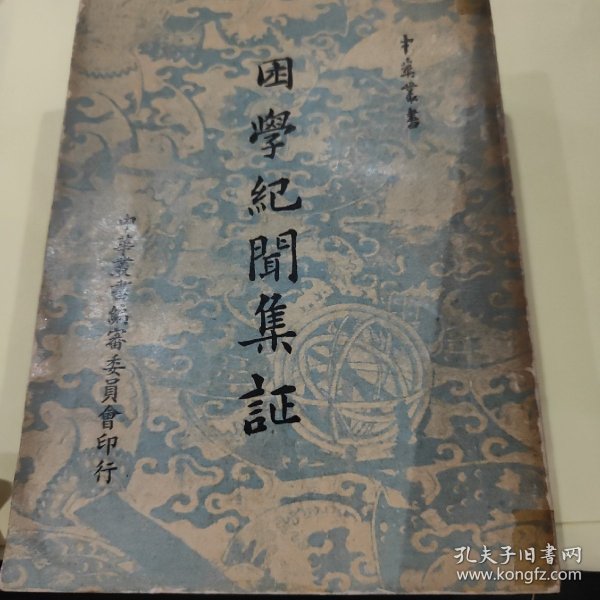 中華叢書
困學紀聞集証
中華叢書編審委員會印行
孔夫子旧书网
www.kongfz.com